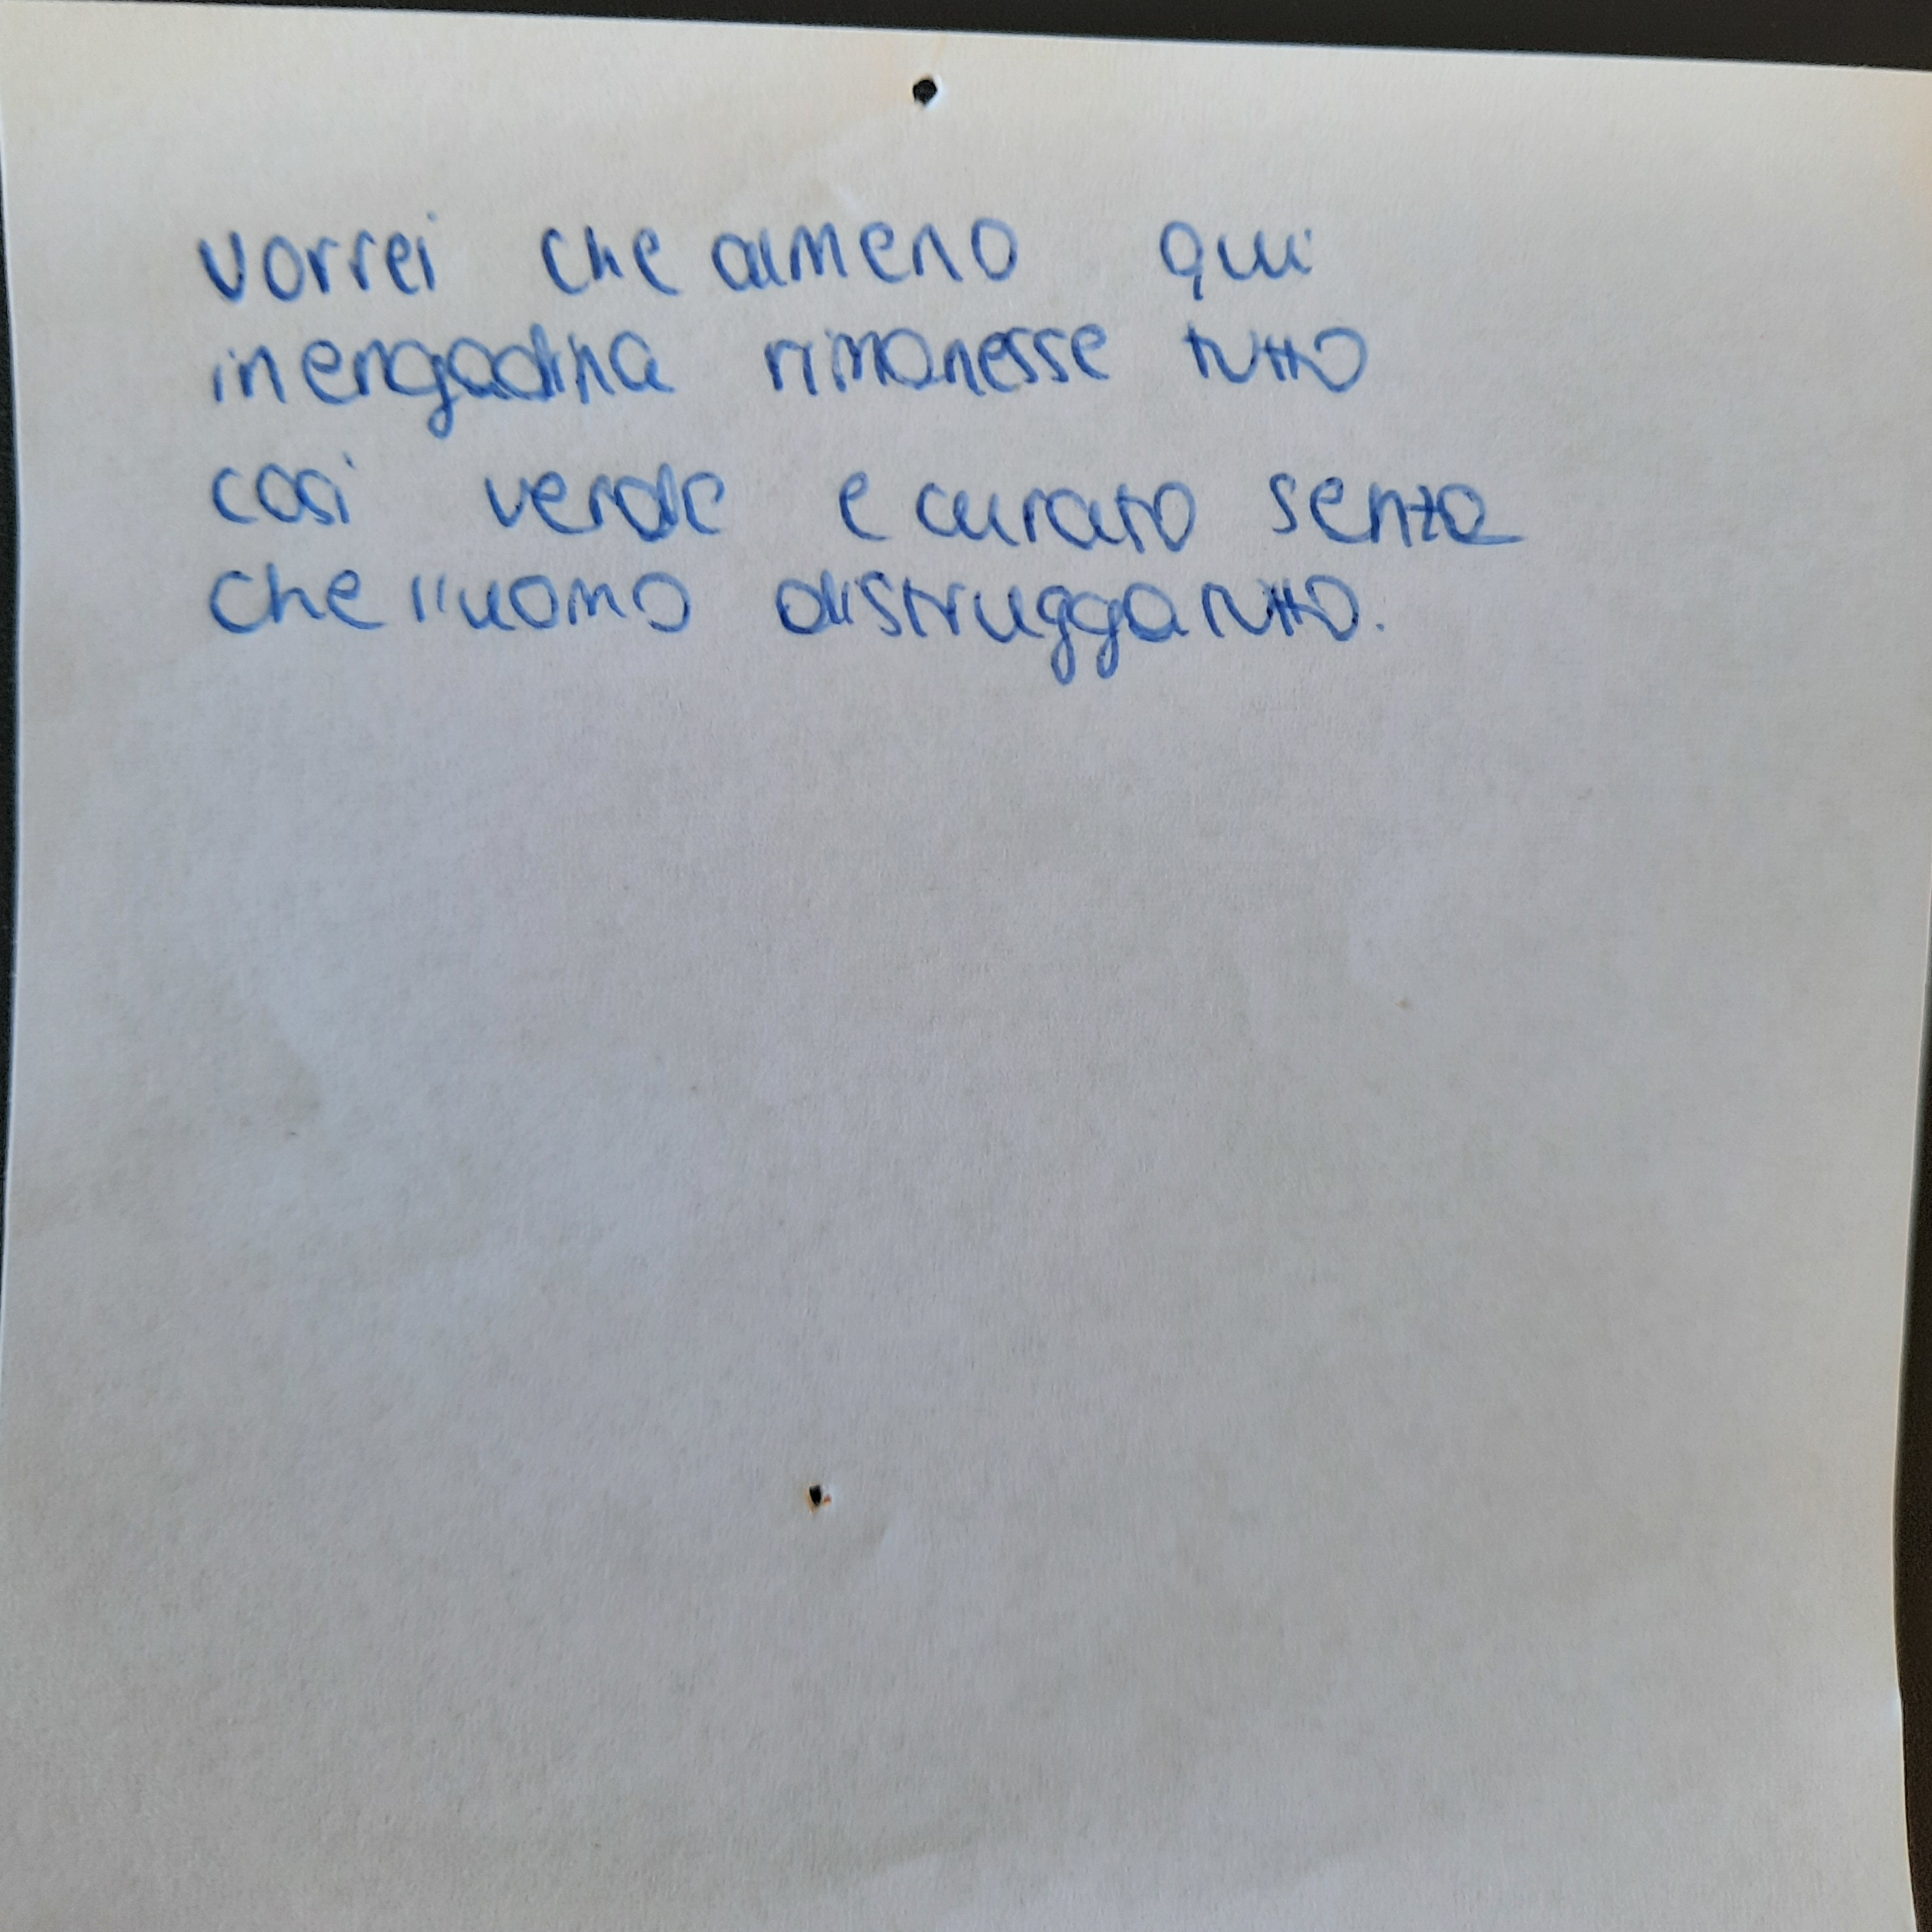 vorrei che almeno qui
in engadina rimanesse tutto
così verde e curato senza
che l'uomo distrugga tutto.